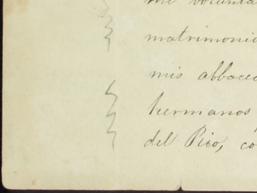 mi volunta
matrimonio
mis albacea
hermanos
del Pino, co